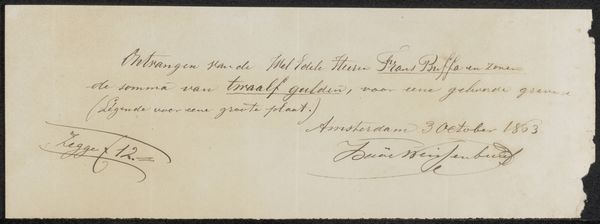 Ontvangen van de Wel Edele Heeren Frans Buffa en zonen
de somma van twaalf gulden, voor eene geleverde gravure
(Légende voor eene groote plaat.)
Amsterdam 3 October 1863
Zegge f 12.=